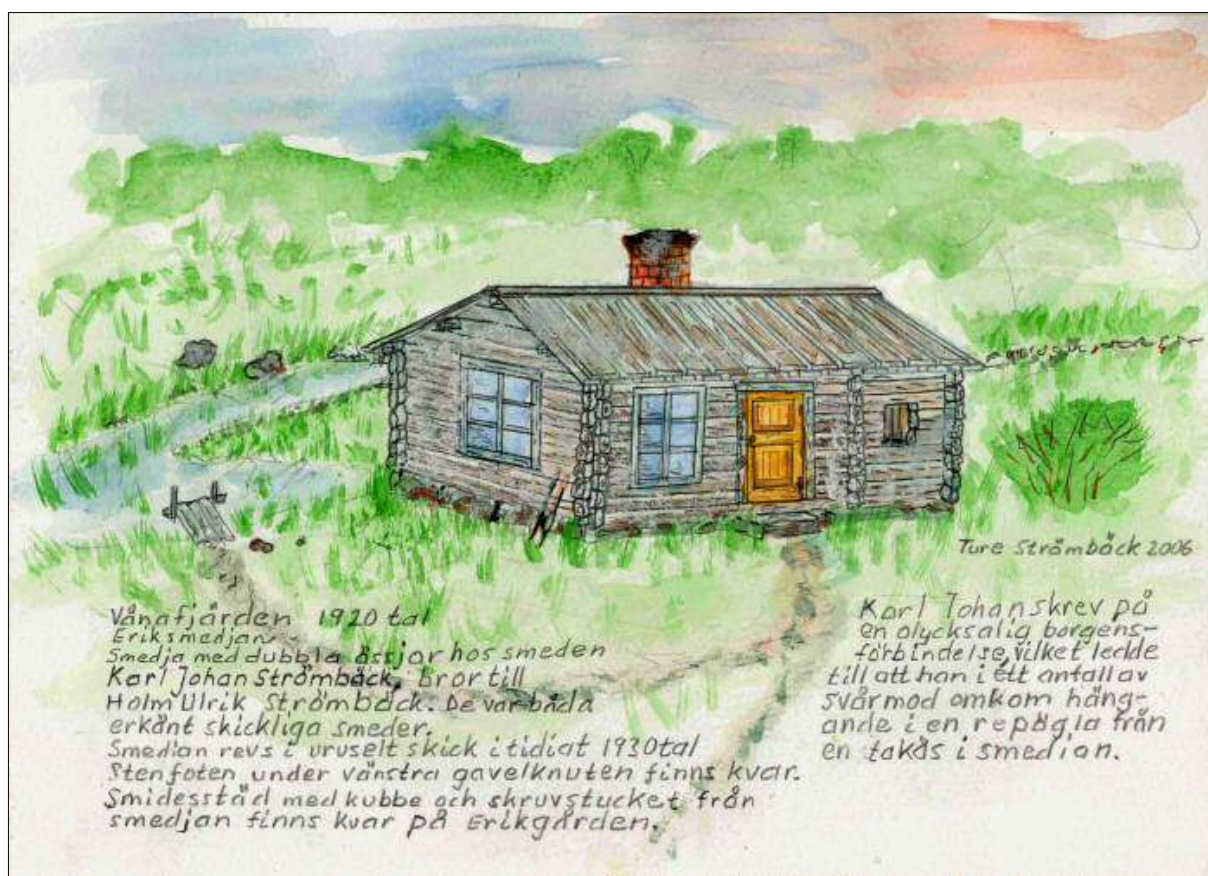 Ture Strömbäck 2006
Vånafjärden 1920 tal
Eriksmedjan
Smedja med dubbla ässjor hos smeden
Karl Johan Strömbäck, bror till
Holm Ulrik Strömbäck. De var båda
erkänt skickliga smeder.
Smedjan revs i uruselt skick i tidiat 1930tal
Stenfoten under vänstra gavelknuten finns kvar.
Smidesstäd med kubbe och skruvstucket från
smedjan finns kvar på Erikgården.
Karl Johan skrev på
en olycksalig borgens-
förbindelse, vilket ledde
till att han i ett anfall av
svårmod omkom häng-
ande i en repögla från
en takås i smedjan.